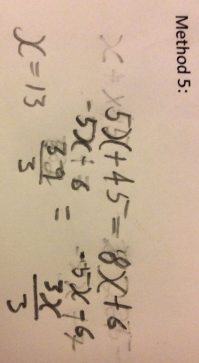 Method 5:
5x + 45 = 8x + 6
-5x - 6 -5x - 6
39/3 = 3x/3
x = 13